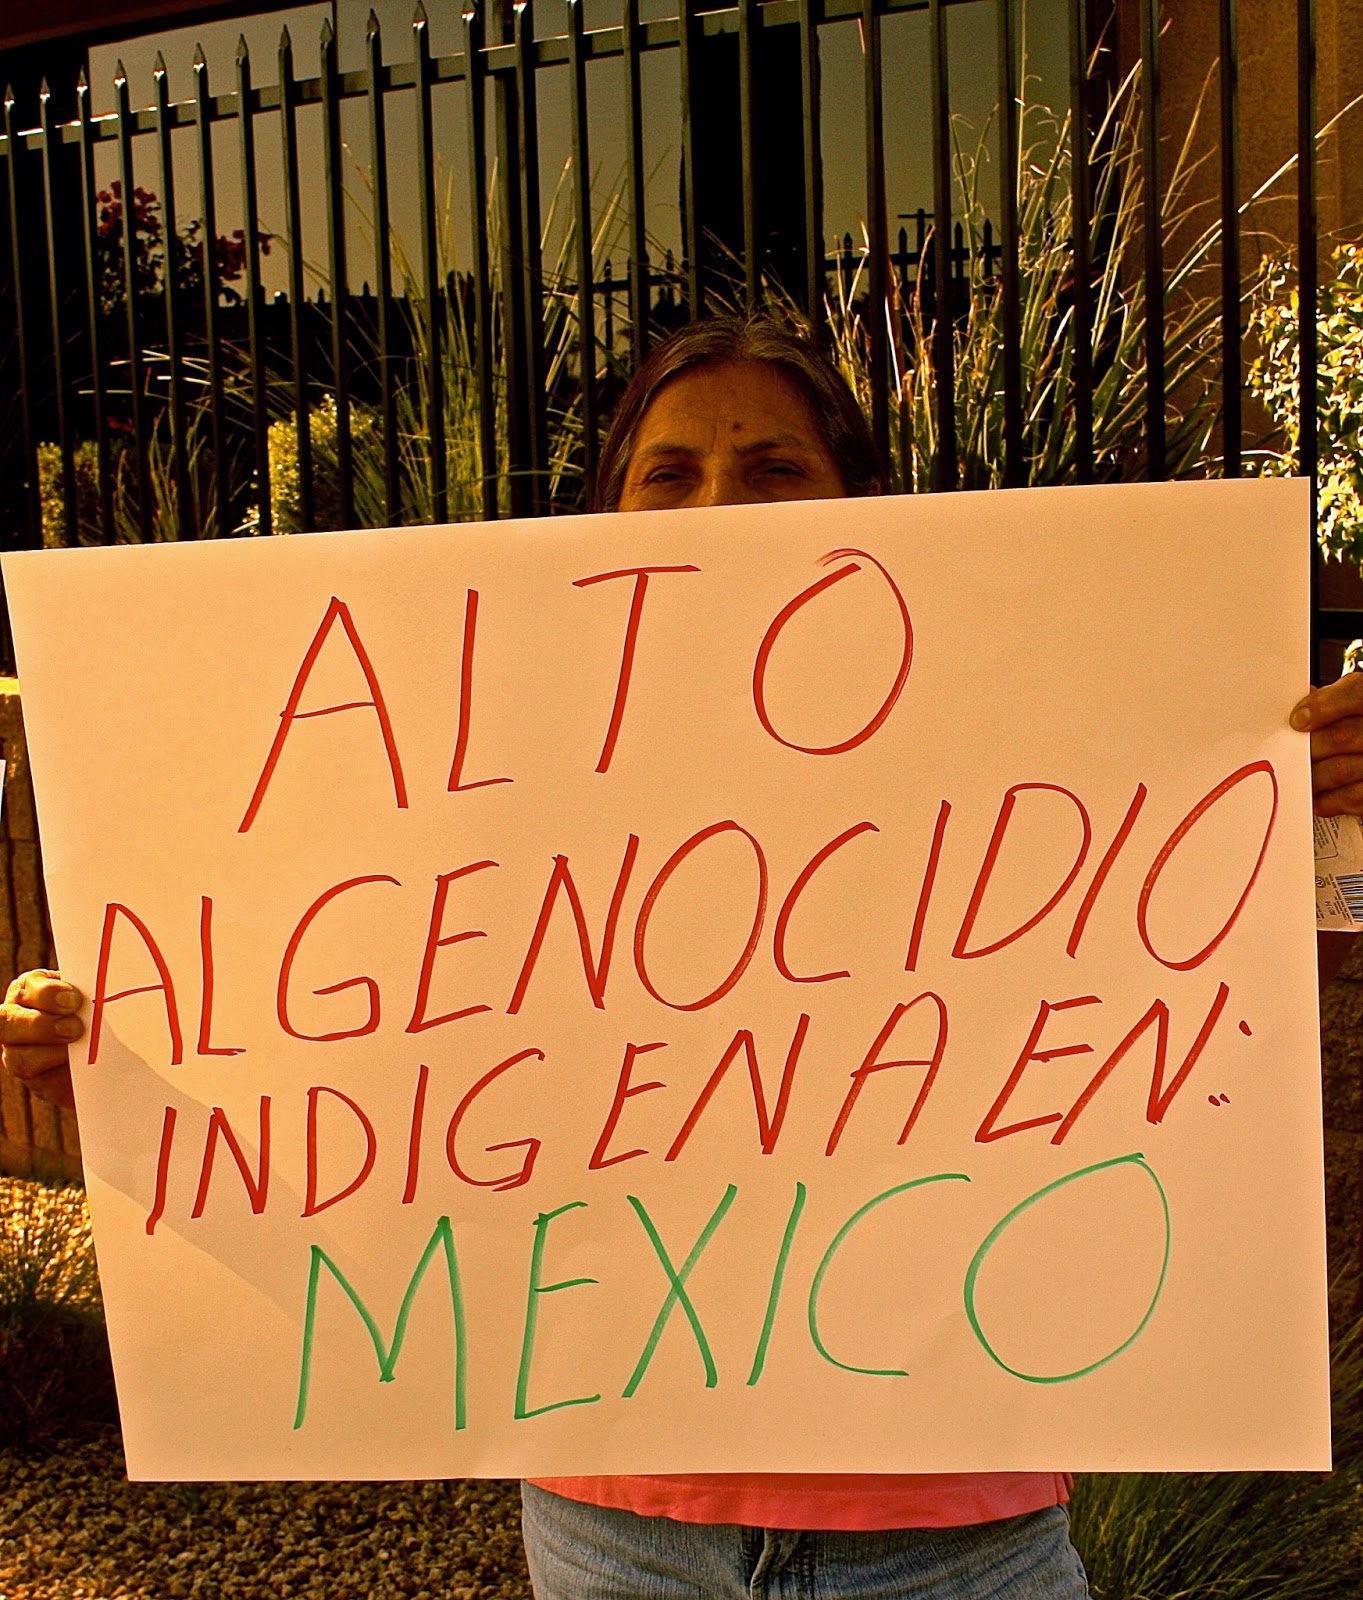 ALTO
AL GENOCIDIO
INDIGENA EN:
MEXICO